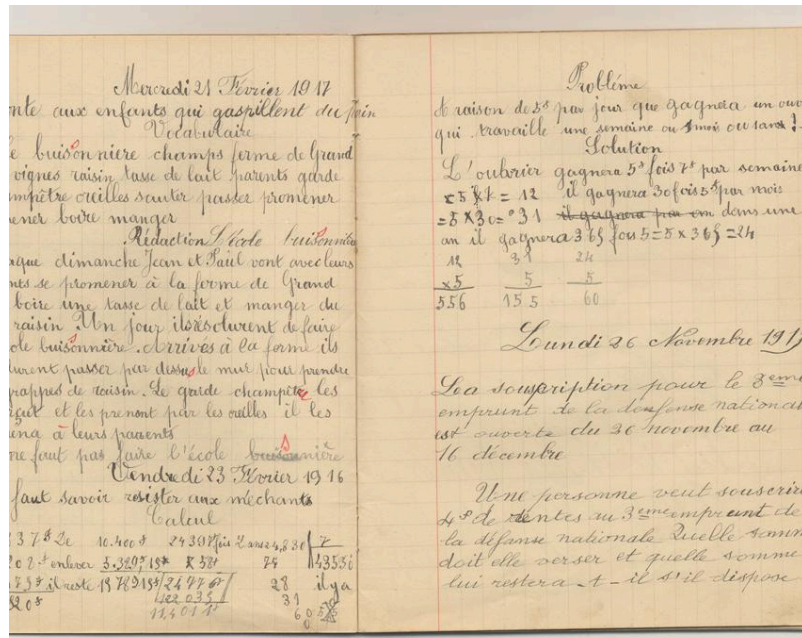 Mercredi 21 Février 1917
nte aux enfants qui gaspillent du pain
Vocabulaire
e buisonnière champs ferme de Grand
vignes raisin tasse de lait parents garde
mpêtre oreilles sauter passer promener
ener boire manger
Rédaction L'école buisonnière
aque dimanche Jean et Paul vont avec leurs
nts se promener à la ferme de Grand
boire une tasse de lait et manger du
raisin Un jour ils résolurent de faire
ole buisonnière. Arrivés à la ferme ils
lurent passer par dessus le mur pour prendre
grappes de raisin. Le garde champêtre les
erçut et les prenont par les oreilles il les
ena à leurs parents
ne faut pas faire l'école buisonnière
Vendredi 23 Février 1916
faut savoir resister aux méchants
Calcul
10.400f
enlever
il reste
il y a
Problème
A raison de 5f par jour que gagnera un ouv
qui travaille une semaine ou 1 mois ou 1 ans ?
Solution
L'oubrier gagnera 5f fois 7f par semaine
= 12 il gagnera 30 fois 5f par mois
= 5 X 30 = 31 il gagnera par em dans une
an il gagnera 365 fois 5 = 5 x 365 = 24
12 31 24
x5 5 5
556 155 60
Lundi 26 Novembre 191
La souscription pour le 3eme
emprunt de la défense national
est ouverte du 26 novembre au
16 décembre
Une personne veut souscrire
4f de rentes au 3eme emprunt de
la défanse nationale Quelle somm
doit elle verser et quelle somme
lui restera-t-il s'il dispose